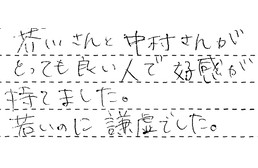 若いさんと中村さんが
とっても良い人で好感が
持てました。
若いのに謙虚でした。